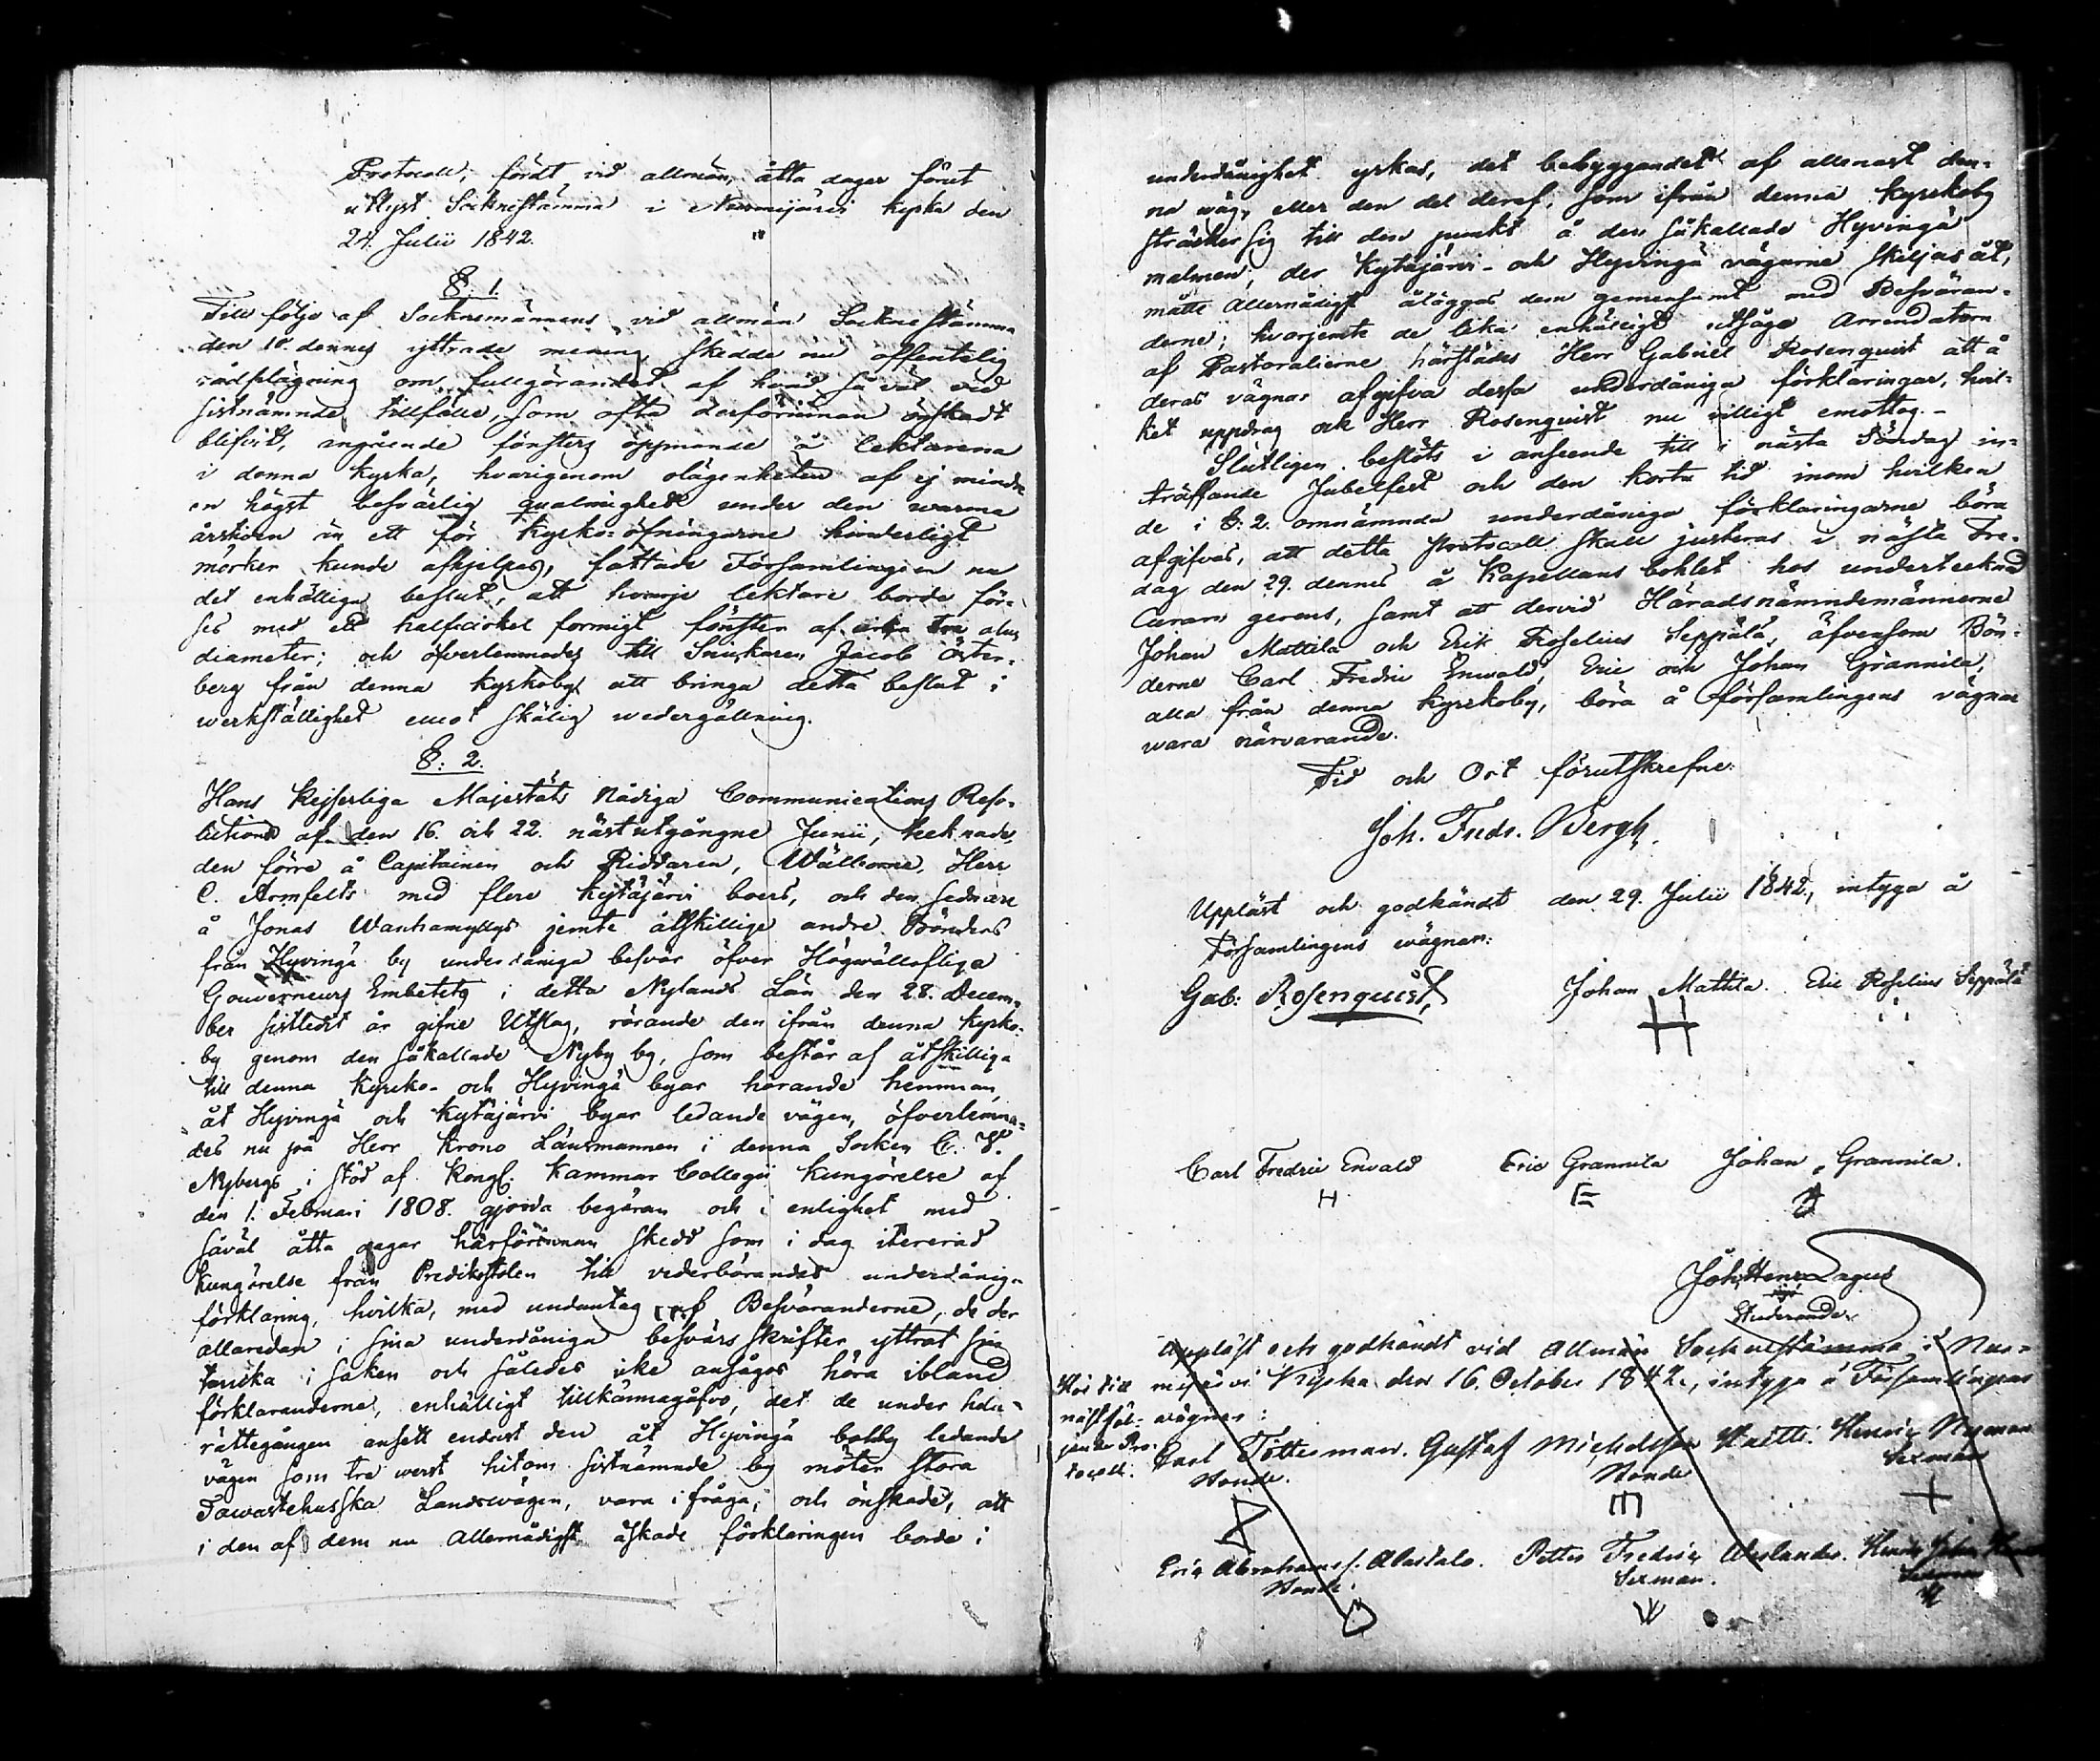 Protocoll, fördt vid allmän, åtta dagar förut
utlyst Sockenstämma i Nurmijärvi kyrka den
24. Julii 1842.
§. 1.
Till följe af Sockenemännens vid allmän Sockne stämma
den 10. dennes yttrade mening skedde nu offentelig
rådplägning om fullgörandet af hvad så väl vid
sistnämnde tillfälle, som ofta derförinnan önskadt
blifvit, angående fönsters öppnande å lektarena
i denna kyrka, hvarigenom olägenheten af ej mindre
en högst besvärlig qualmighet under den warma
årstiden än ett för kyrko-öfningarne hinderligt
mörker kunde afhjelpas, fattade Församlingen nu
det enhälliga beslut, att hvarje lektare borde för-
ses med ett halfcirkel formigt fönster af tre alns
diameter; och öfverlemnades till Snickaren Jacob Öster-
berg från denna kyrkoby att bringa detta beslut i
werkställighet emot skälig wedergällning.
§: 2.
Hans Kejserliga Majestäts Nådiga Communications Reso-
lutioner af den 16. och 22. nästutgångne Junii, tecknade,
den förre å Capitainen och Riddaren, Wälborne, Herr
C. Armfelts med flere Kytäjärvi boers, och den sednare
å Jonas Wanhamyllys jemte åtskillige andre Bönders
från Hyvingä by underdåniga besvär öfver Högwällofliga
Gouverneurs Embetets i detta Nylands Län den 28. Decem-
ber sistledit år gifne Utslag, rörande den ifrån denna kyrko-
by genom den såkallade Nyby by, som består af åtskilliga
till denna Kyrko- och Hyvingä byar hörande hemman,
åt Hyvingä och Kytäjärvi byar ledande vägen, öfverlemna-
des nu på Herr Krono Länsmannen i denna Socken C. W.
Nybergs i stöd af Kongl. Kammar Collegii Kungörelse af
den 1. Februari 1808. gjorda begäran och i enlighet med
såväl åtta dagar härförinnan skedd som i dag itererad
kungörelse från Predikstolen till vederbörandes underdåniga
förklaring, hvilka, med undantag af Besväranderne, de der
allaredan i sina underdåniga besvärs skrifter yttrat sin
tanka i saken och således icke ansågos höra ibland
förklaranderne, enhälligt tillkännagåfvo, det de under hela
rättegången ansett endast den åt Hyvingä bohby ledande
vägen som tre werst hitom sistnämnde by möter stora
Tawastehusska Landsvägen, vara i fråga, och önskade, att
i den af dem nu Allernådigst äskade förklaringen borde i
underdånighet yrkas, det bebyggandet af allenast den-
na wäg, eller den del deraf, som ifrån denna kyrkoby
sträcker sig till den punkt å den såkallade Hyvingä
malmen, der Kytäjärvi- och Hyvingä vägarne skiljas åt,
måtte Allernådigst åläggas dem gemensamt med Besväran-
derne; hvarjemte de lika enhälligt utsågo Arrendatorn
af Pastoralierne härstädes Herr Gabriel Rosenquist att å
deras vägnar afgifva dessa underdåniga förklaringar, hvil-
ket uppdrag ock Herr Rosenquist nu villigt emottog.-
Slutligen beslöts i anseende till i nästa Söndag in-
träffande Jubelfest och den korta tid inom hvilken
de i §: 2. omnämnda underdåniga förklaringarne böra
afgifvas, att detta Protocoll skall justeras i nästa Fre-
dag den 29. dennes å Kapellans bohlet hos undertecknad
Curam gerens, samt att dervid Häradsnämndemännerne
Johan Mattila och Erik Roselius Seppälä, äfvensom Bön-
derne Carl Fredric Enwald, Eric och Johan Grannila,
alla från denna Kyrkoby, böra å församlingens vägnar
wara närvarande.
Tid och Ort förutskrefne.
Joh. Fredr. Bergh.
Uppläst och godkändt den 29. Julii 1842, intyga å
Församlingens wägnar:
Gab: Rosenquist,
Johan Mattila. Eric Roselius Seppälä
Carl Fredric Envald Eric Grannila Johan Grannila.
Joh. Henr. Lagus
Studerande.
Uppläst och godkändt vid Allmän Socknestämma i Nur-
mijärvi Kyrka den 16. October 1842., intyga å Församlingens
wägnar:
Hör till
näst föl-
jande Pro-
tocoll.
Carl Totterman. Gustaf Michelsson Knitti. Henric Nyman
Bonde. Bonde Sexman
Eric Abrahamss. Alastalo. Petter Fredric Weslander. Henric Johan
Bonde. Sexman. Sexman